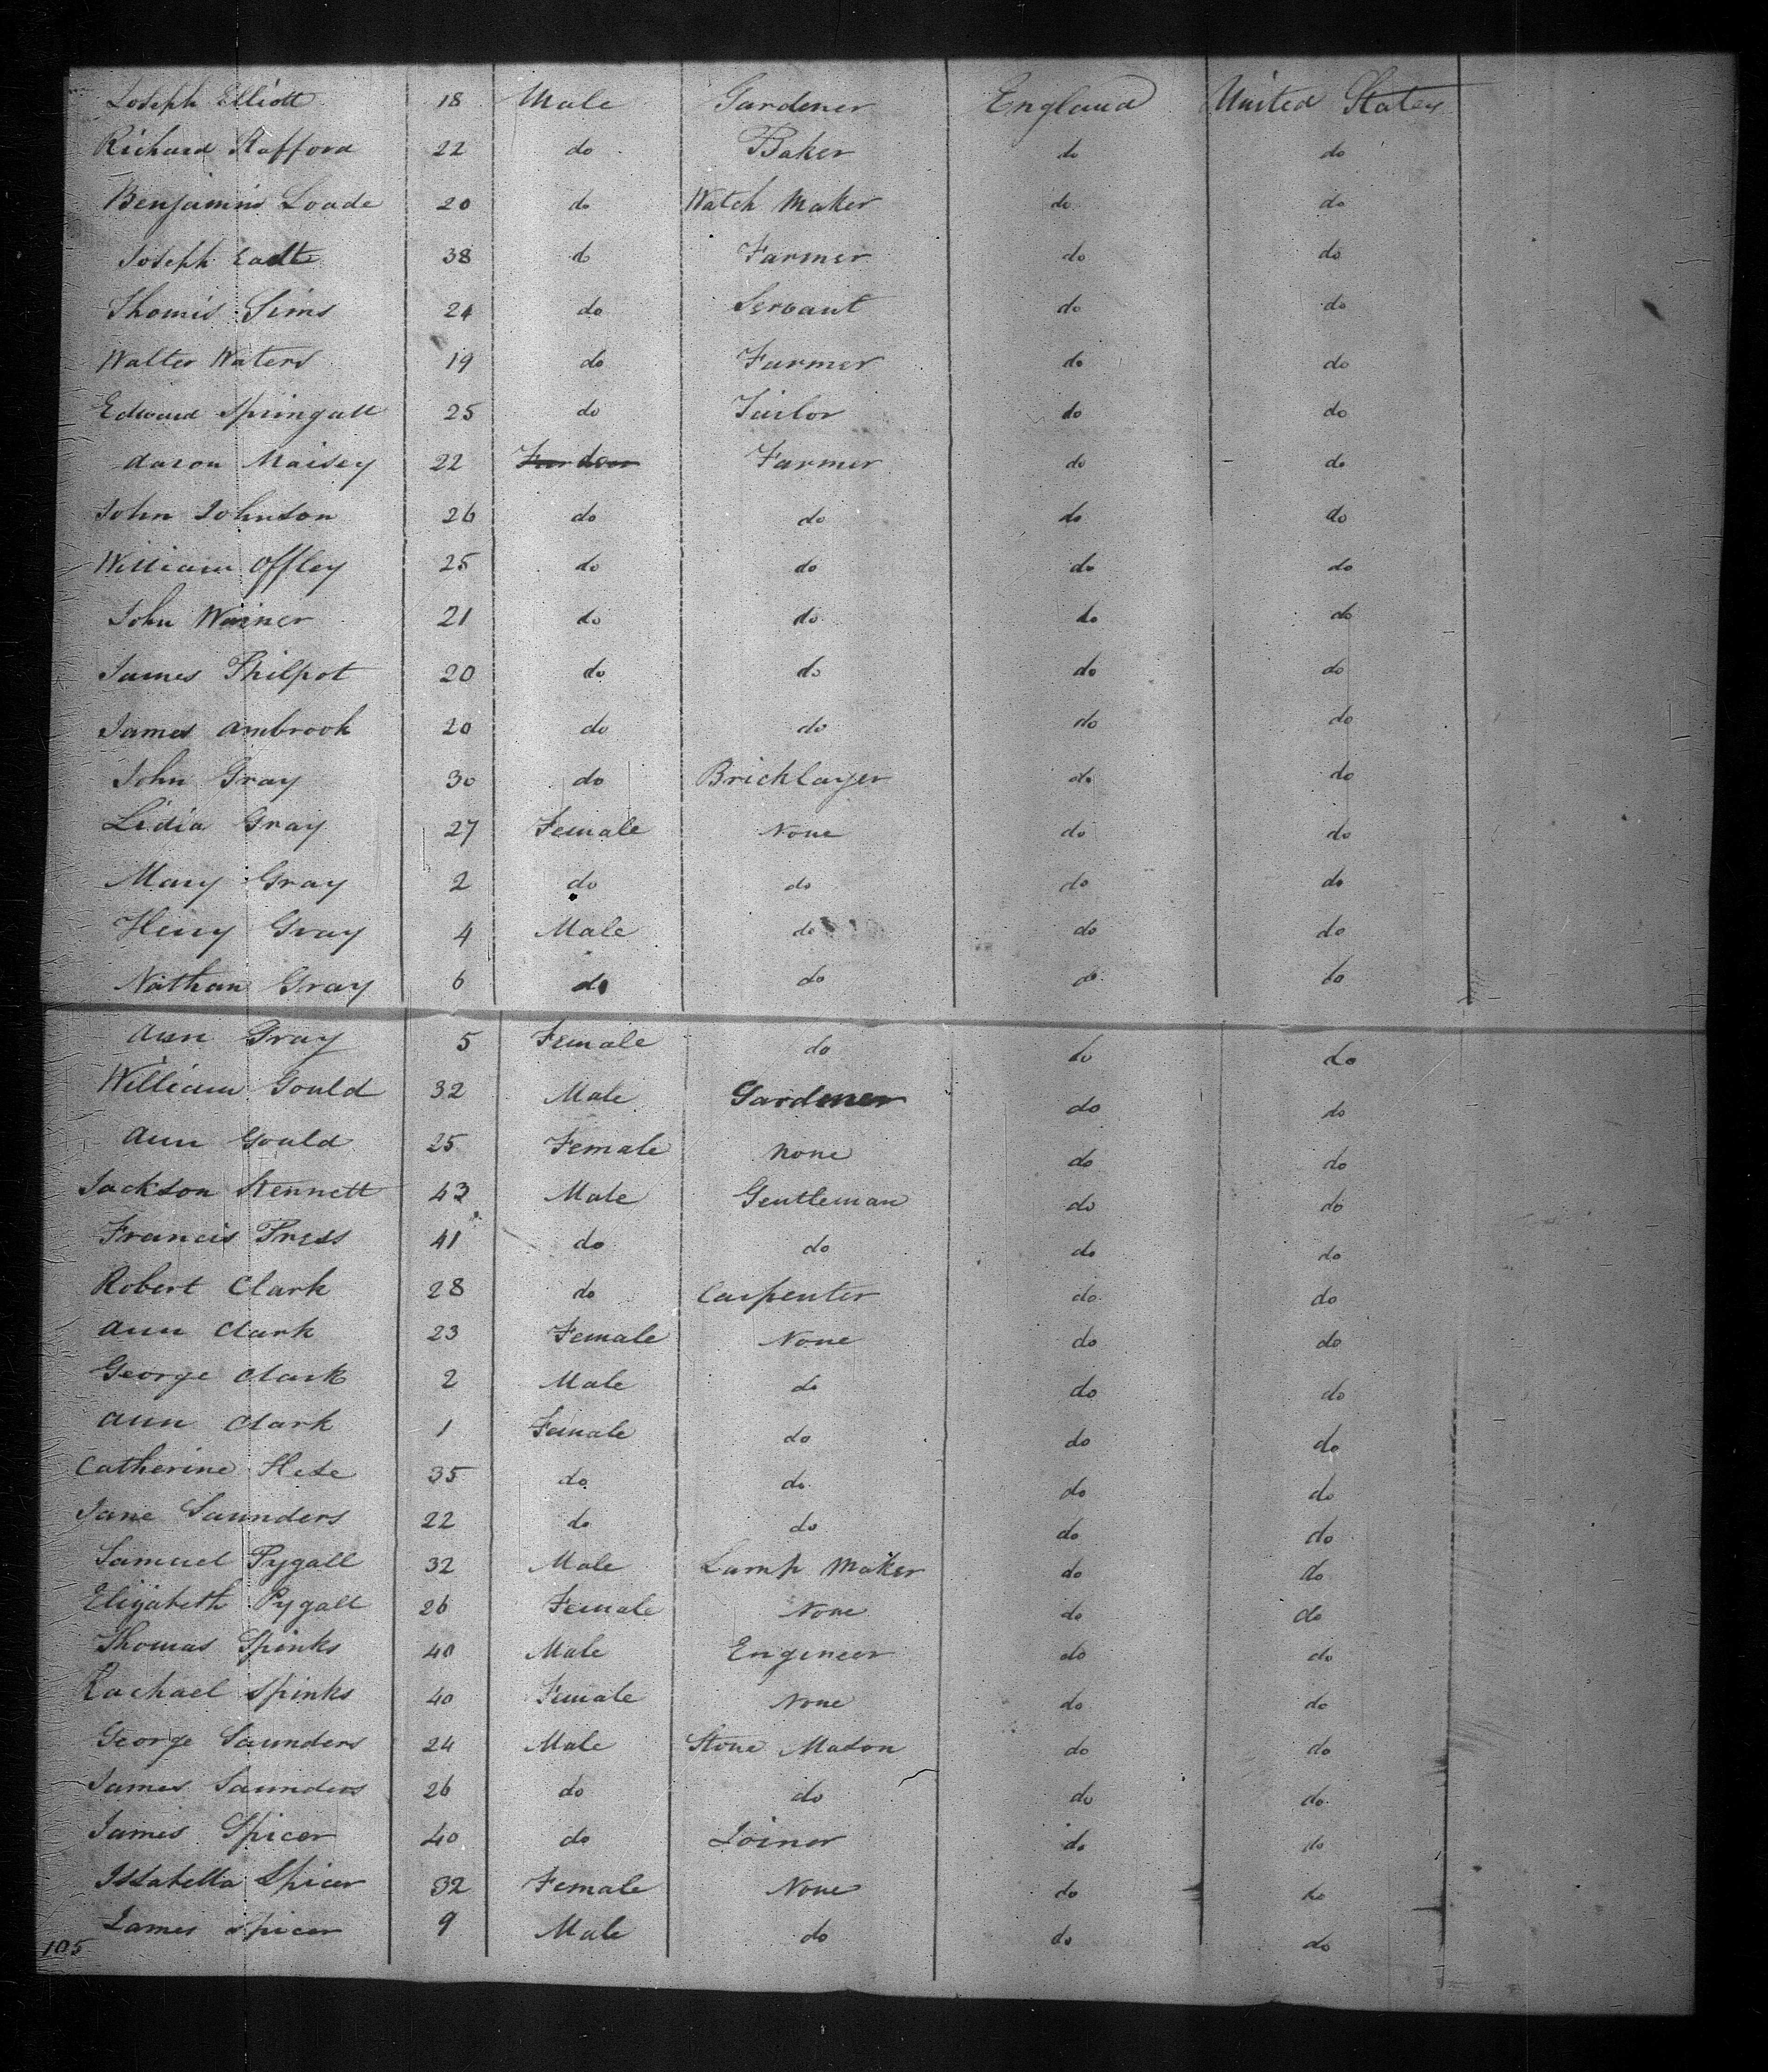 Joseph Elliott 18 Male Gardener England United States
Richard Stafford 22 do Baker do do
Benjamin Loade 20 do Watch Maker do do
Joseph 38 do Farmer do do
Thomis Sims 24 do Servant do do
Walter Waters 19 do Farmer do do
Edward Springall 25 do Tailor do do
Aaron Maisey 22 Farmer do do
John Johnson 26 do do do do
William Offley 25 do do do do
John 21 do do do do
James Philpot 20 do do do do
James Ambrook 20 do do do do
John Gray 30 do Bricklayer do do
Lidia Gray 27 Female None do do
Mary Gray 2 do do do do
Henry Gray 4 Male do do do
Nathan Gray 6 do do do do
Ann Gray 5 Female do do do
William Gould 32 Male Gardener do do
Ann Gould 25 Female None do do
Jackson Stennett 43 Male Gentleman do do
Francis Press 41 do do do do
Robert Clark 28 do Carpenter do do
Ann Clark 23 Female None do do
George Clark 2 Male do do do
Ann Clark 1 Female do do do
Catherine 35 do do do do
Jane Saunders 22 do do do do
Samuel Pygall 32 Male Lamp Maker do do
Elizabeth Pygall 26 Female None do do
Thomas Spinks 40 Male Engineer do do
Rachael Spinks 40 Female None do do
George Saunders 24 Male Stone Mason do do
James Saunders 26 do do do do
James Spicer 40 do Joiner do do
Issabella Spicer 32 Female None do do
James Spicer 9 Male do do do
105